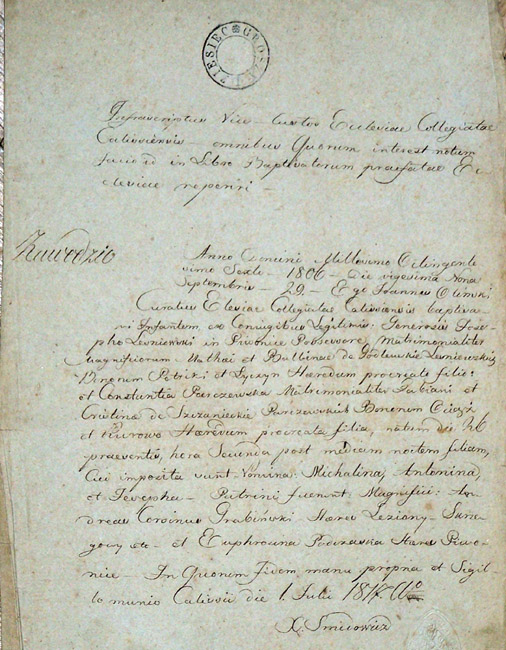 DZIESIEĆ GROSZY
Infrascriptus Vice-Custos Ecclesiae Collegiatae
Calissiensis omnibus Quorum interest notum
facio id in Libro Baptisatorum praefatae Ec
clesiae reperiri
Zawodzie
Anno Domini Millesimo Octingente
simo Sexto - 1806 - Die vigesima Nona
Septembris - 29 - Ego Joannes
Curatus Ecclesiae Collegiatae Calissiensis baptisa
vi Infantem ex Conjugibus Legitimis: Generosis Jose
pho Leśniewski in Piwonice Possessore Matrimonialiter
Magnificorum Mathai et Balbinae de Leśniewskich
Bonorum et Hæredum procreato filio:
et Constantia Parczewska Matrimonialiter Fabiani et
Cristina de Parczewskich Bonorum
et Hæredum procreata filia, natam die 26
praeventis, hora Secunda post mediam noctem filiam,
Cui imposita sunt Nomina: Michalina, Antonina,
et Josepha - Patrini fuerunt Magnifici: An
dreas Corsinus Grabiński Hæres
etc - et Euphrosina Hæres Piwo
nice - In Quorum fidem manu propria et Sigil
lo munio Calissii die 1 Julii